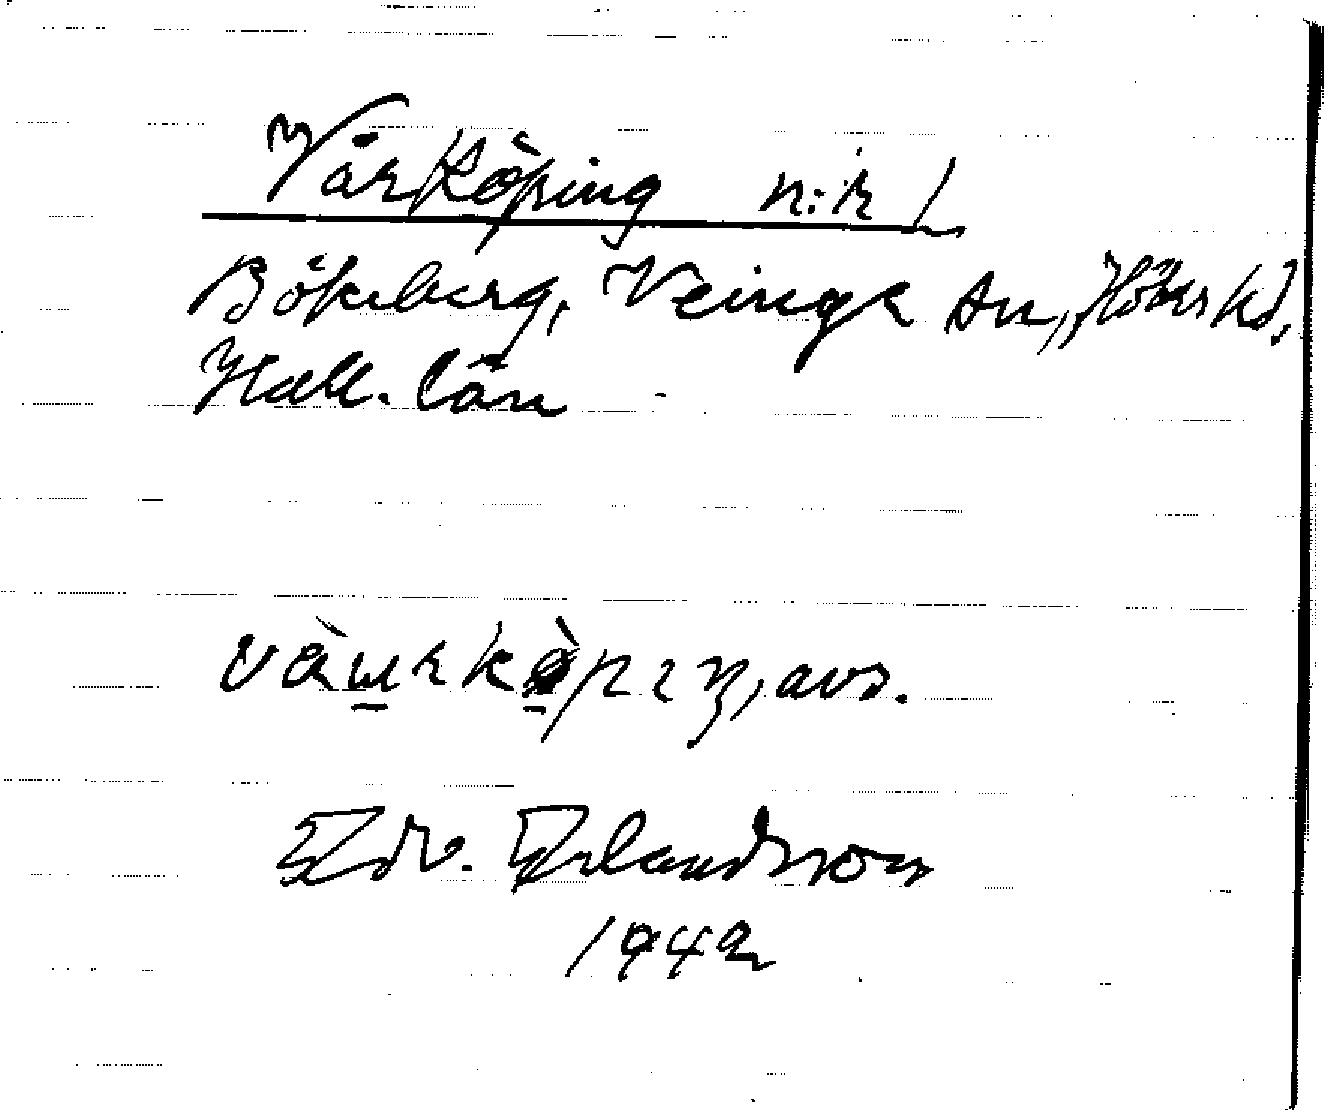 Vårköping n:r 1
Bökeberg, Veinge sn, Höks hd,
Hall. län
avs.
Edv. Erlandsson
1942